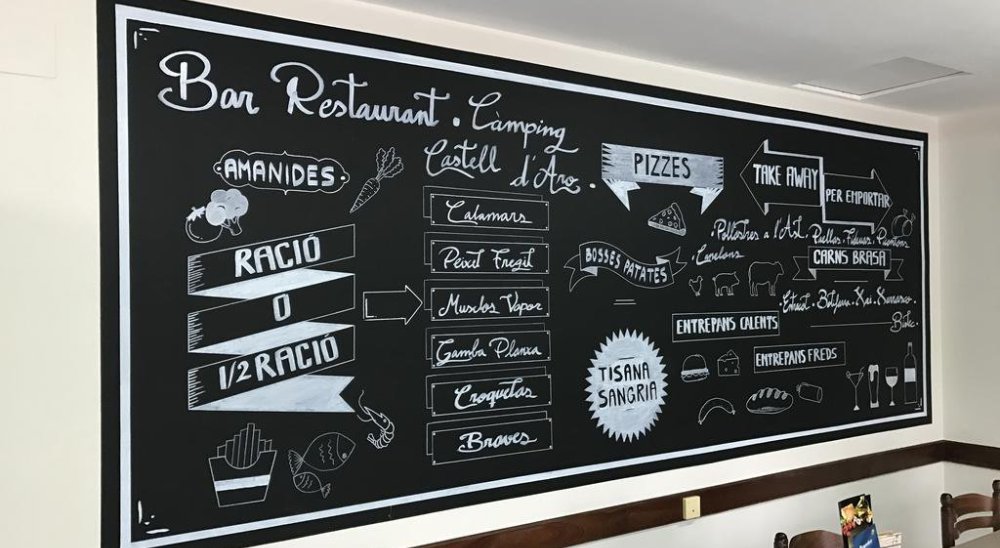 Bar Restaurant. Càmping
Castell d'Aro.
AMANIDES
RACIÓ
O
1/2 RACIÓ
Calamars
Peixit Fregit
Musclos Vapor
Gamba Planxa
Croquetas
Braves
PIZZES
BOSSES PATATES
TISANA
SANGRIA
TAKE AWAY
PER EMPORTAR
Pollastres a l'Ast. Paellas. Fideuas.
Canelons
CARNS BRASA
Entrecot. Botifarra. Xai. Xurrasco.
Bistec
ENTREPANS CALENTS
ENTREPANS FREDS